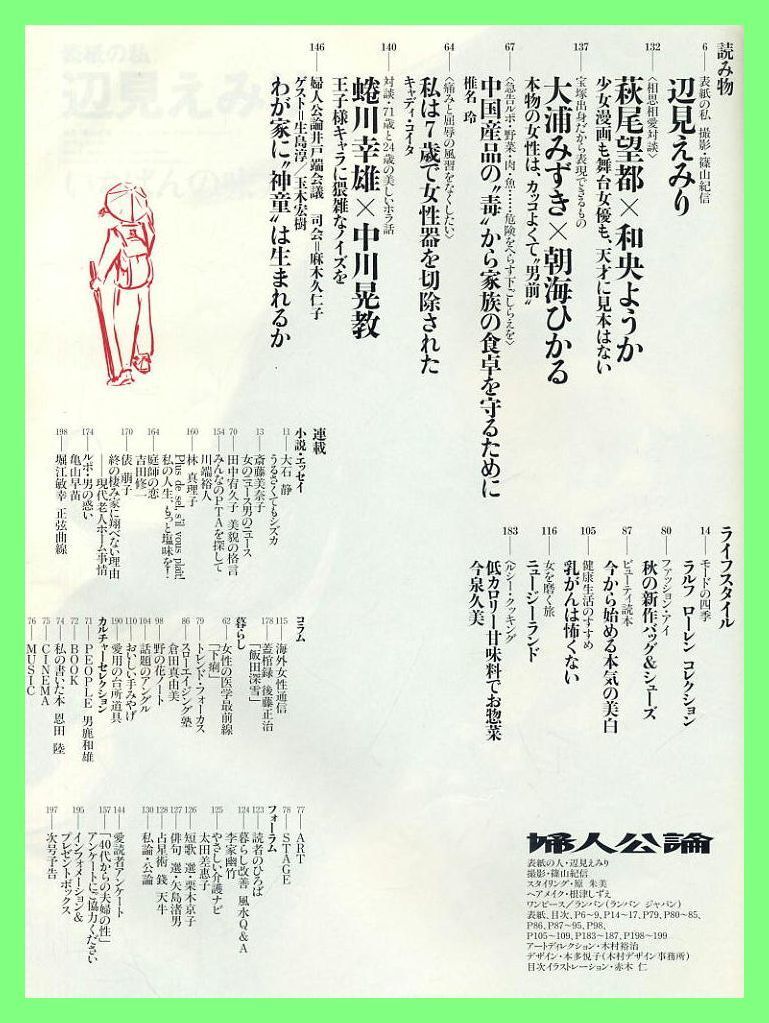 読み物
6 表紙の私 撮影・篠山紀信
辺見えみり
132 〈相思相愛対談〉
萩尾望都×和央ようか
少女漫画も舞台女優も、天才に見本はない
137 宝塚出身だから表現できるもの
大浦みずき×朝海ひかる
本物の女性は、カッコよくて〝男前〟
67 〈急告ルポ・野菜・肉・魚……危険をへらす下ごしらえを〉
中国産品の〝毒〟から家族の食卓を守るために
椎名 玲
64 〈痛みと屈辱の風習をなくしたい〉
私は7歳で女性器を切除された
キャディ・コイタ
140 対談・71歳と24歳の美しいホラ話
蜷川幸雄×中川晃教
王子様キャラに猥雑なノイズを
146 婦人公論井戸端会議 司会=麻木久仁子
ゲスト=生島淳/玉木宏樹
わが家に〝神童〟は生まれるか
ライフスタイル
14 モードの四季
ラルフ ローレン コレクション
80 ファッション・アイ
秋の新作バッグ&シューズ
87 ビューティ読本
今から始める本気の美白
105 健康生活のすすめ
乳がんは怖くない
116 女を磨く旅
ニュージーランド
183 ヘルシー・クッキング
低カロリー甘味料でお惣菜
今泉久美
連載
小説・エッセイ
11 大石 静
うるさくてもシズカ
13 斎藤美奈子
女のニュース男のニュース
70 田中宥久子 美貌の格言
154 みんなのPTAを探して
川端裕人
160 林 真理子
Plus de sel, s'il vous plaît!
私の人生、もっと塩味を!
164 庭師の恋
吉田修一
170 俵 萠子
終の棲み家に翔べない理由
――現代老人ホーム事情
174 ルポ・男の惑い
亀山早苗
198 堀江敏幸 正弦曲線
コラム
115 海外女性通信
178 蓋棺録 後藤正治
「飯田深雪」
暮らし
62 女性の医学最前線
「下痢」
79 トレンド・フォーカス
86 スローエイジング塾
倉田真由美
98 野の花ノート
104 話題のアングル
110 おいしい手みやげ
190 愛用の台所道具
カルチャーセレクション
71 PEOPLE 男鹿和雄
72 BOOK
74 私の書いた本 恩田 陸
75 CINEMA
76 MUSIC
77 ART
78 STAGE
フォーラム
123 読者のひろば
124 暮らし改善 風水Q&A
李家幽竹
125 やさしい介護ナビ
太田差惠子
126 短歌 選・栗木京子
127 俳句 選・矢島渚男
128 占星術 銭 天牛
130 私論・公論
144 愛読者アンケート
157 「40代からの夫婦の性」
アンケートにご協力ください
195 インフォメーション&
プレゼントボックス
197 次号予告
婦人公論
表紙の人・辺見えみり
撮影・篠山紀信
スタイリング・原 朱美
ヘアメイク・根津しずえ
ワンピース/ランバン(ランバン ジャパン)
表紙、目次、P6~9、P14~17、P79、P80~85、
P86、P87~95、P98、
P105~109、P183~187、P198~199
アートディレクション・木村裕治
デザイン・本多悦子(木村デザイン事務所)
目次イラストレーション・赤木 仁